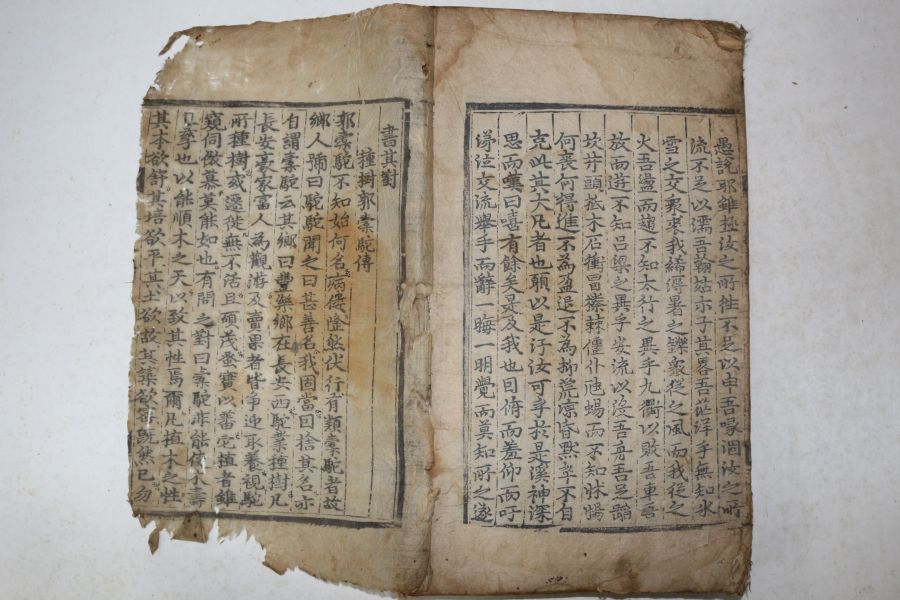 愚說耶雖極汝之所往不足以申吾喙涸汝之所
流不足以濡吾翰姑示子其畧吾茫洋乎無知氷
雪之交衆裘我絺溽暑之鑠衆從之風而我從之
火吾盪而趨不知太行之異乎九衢以敗吾車吾
放而遊不知呂梁之異乎安流以沒吾舟吾足蹈
坎井頭抵木石衝冒榛棘僵仆虺蜴而不知怵惕
何喪何得進不為盈退不為抑荒凉昏黙卒不自
克此其大凡者也願以是汙汝可乎於是溪神深
思而嘆曰嘻有餘矣是及我也因俯而羞仰而吁
涕泣交流舉手而辭一晦一明覺而莫知所之遂
書其對
種樹郭橐駝傳
郭橐駝不知始何名病僂隆然伏行有類橐駝者故
鄉人號曰駝駝聞之曰甚善名我固當因捨其名亦
自謂橐駝云其鄉曰豐樂鄉在長安西駝業種樹凡
長安豪家富人為觀游及賣果者皆爭迎取養視駝
所種樹或遷徙無不活且碩茂蚤實以蕃它植者雖
窺伺傚慕莫能如也有問之對曰橐駝非能使木壽
且孶也以能順木之天以致其性焉爾凡植木之性
其本欲舒其培欲平其土欲故其築欲密旣然已勿